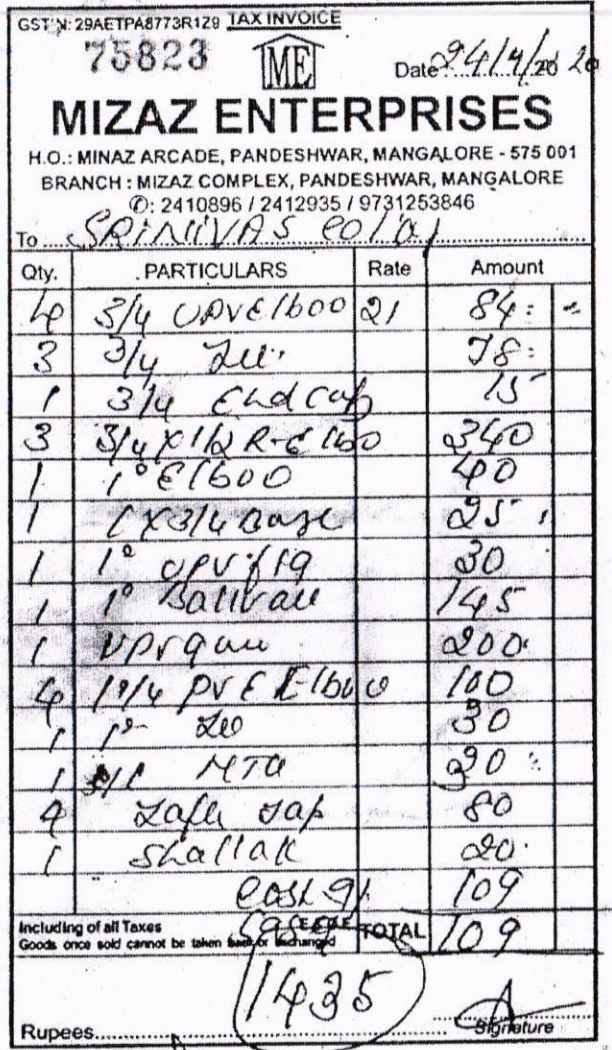 GST N: 29AETPA8773R1Z9 TAX INVOICE
75823
ME
Date 24/4/20 20
MIZAZ ENTERPRISES
H.O.: MINAZ ARCADE, PANDESHWAR, MANGALORE - 575 001
BRANCH : MIZAZ COMPLEX, PANDESHWAR, MANGALORE
✆: 2410896 / 2412935 / 9731253846
To SRINIVAS
Qty. PARTICULARS Rate Amount
4 3/4 UPVElboo 21 84
3 3/4 78
1 3/4 End Cap 15
3 3/4 x 1/2 R-Elbo 340
1 1" Elboo 40
1 1 x 3/4 25
1 1" 30
1 1" 145
1 200
4 PVC Elboo 100
1 1" 30
1 MTA 30
4 80
1 Shallak 20
109
Including of all Taxes
Goods once sold cannot be taken back or exchanged
E.&O.E. TOTAL 109
1435
Rupees
Signature